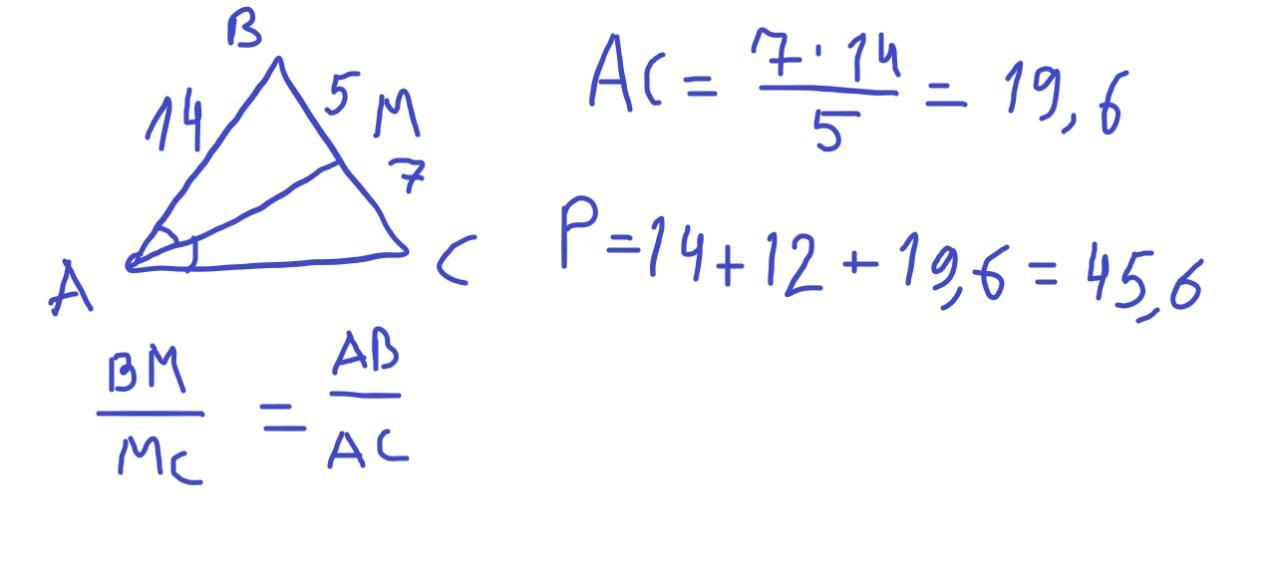 B
14
5
M
7
A
C
BM/MC = AB/AC
AC = 7·14/5 = 19,6
P = 14 + 12 + 19,6 = 45,6